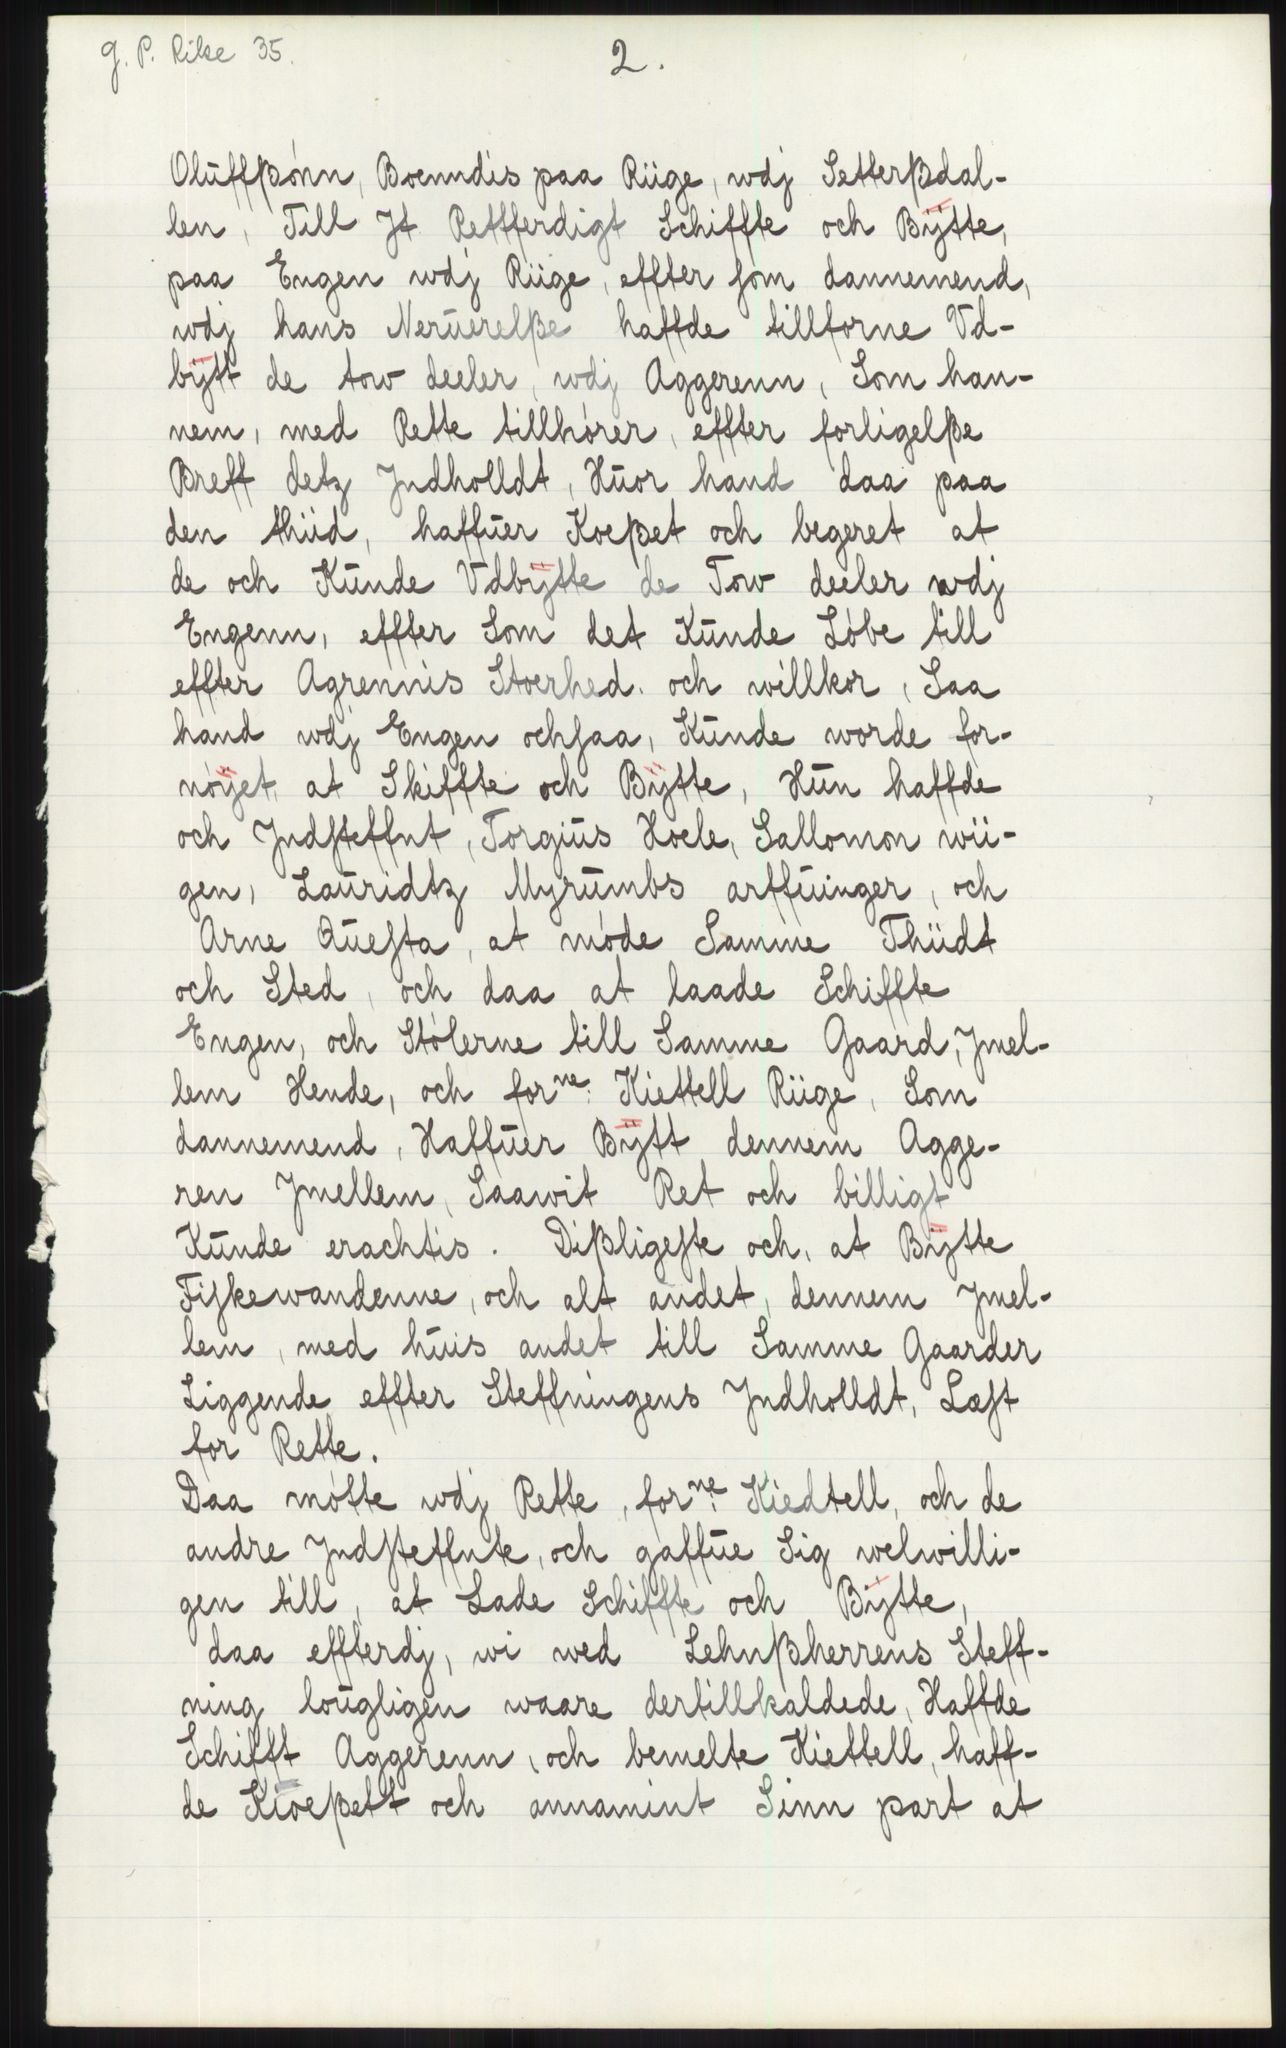 g. P. Rike 35.
2.
Olūffßónn, Boenndis paa Riige, wdj Setterßdal-
len, Till Jt Rettferdigt Schiffte och Bÿtte,
paa Engen wdj Riige, effter som dannemend,
wdj hans Nerūerelße haffde tillforne Vd-
bÿtt de tow deeler, wdj Aggerenn, Som han-
nem, med Rette tillhórer, effter forligelße
Breff detz Jndholldt, Hūor hand daa paa
den thiid, haffūer Koeßet och begeret at
de och Kūnde Vdbÿtte de Tow deeler wdj
Engenn, effter Som det Kūnde Lóbe till
effter Agrennis Stoerhed. och willkor, Saa
hand wdj Engen ochsaa, Kūnde worde for-
nóÿet, at Skiffte och Bÿtte, Hūn haffde
och Jndsteffnt, Torgiūs Hoele, Sallomon wii-
gen, Laūridtz Myrūmbs arffūinger, och
Arne Qūesta, at móde Samme Thiidt
och Sted, och daa at laade Schiffte
Engen, och Stólerne till Samme Gaard, Jmel-
lem Hende, och forne: Kiettell Riige, Som
dannemend, Haffūer Bÿtt dennem Agge-
ren Jmellem, Saawit Ret och billigt
Kūnde erachtis. Dißligeste och, at Bÿtte
Fiskewandenne, och alt andet, dennem Jmel-
lem, med hūis andet till Samme Gaarder
Liggende effter Steffningens Jndholldt, Læst
for Rette.
Daa mótte wdj Rette, forne: Kiedtell, och de
andre Jndsteffnte, och gaffūe Sig welwilli-
gen till, at Lade Schiffte och Bÿtte,
daa effterdj, wi wed Lehnßherrens Steff-
ning loūgligen waare dertillkaldede, Haffde
Schifft Aggerenn, och bemelte Kiettell, haff-
de Kūoeßett och annamint Sinn part at